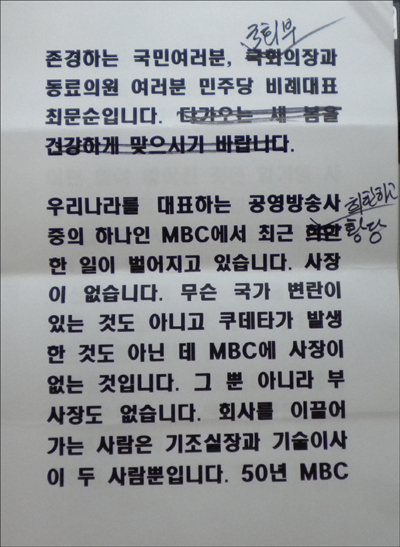 국회부
존경하는 국민여러분, 국회의장과
동료의원 여러분 민주당 비례대표
최문순입니다. 다가오는 새 봄을
건강하게 맞으시기 바랍니다.
우리나라를 대표하는 공영방송사
희한하고
중의 하나인 MBC에서 최근 희한 황당
한 일이 벌어지고 있습니다. 사장
이 없습니다. 무슨 국가 변란이
있는 것도 아니고 쿠데타가 발생
한 것도 아닌 데 MBC에 사장이
없는 것입니다. 그 뿐 아니라 부
사장도 없습니다. 회사를 이끌어
가는 사람은 기조실장과 기술이사
이 두 사람뿐입니다. 50년 MBC